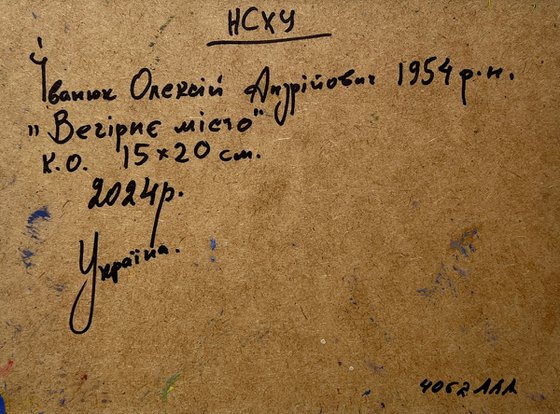 НСХУ
Іванюк Олексій Андрійович 1954 р.н.
„Вечірнє місто"
к.о. 15×20 см.
2024р.
Україна.